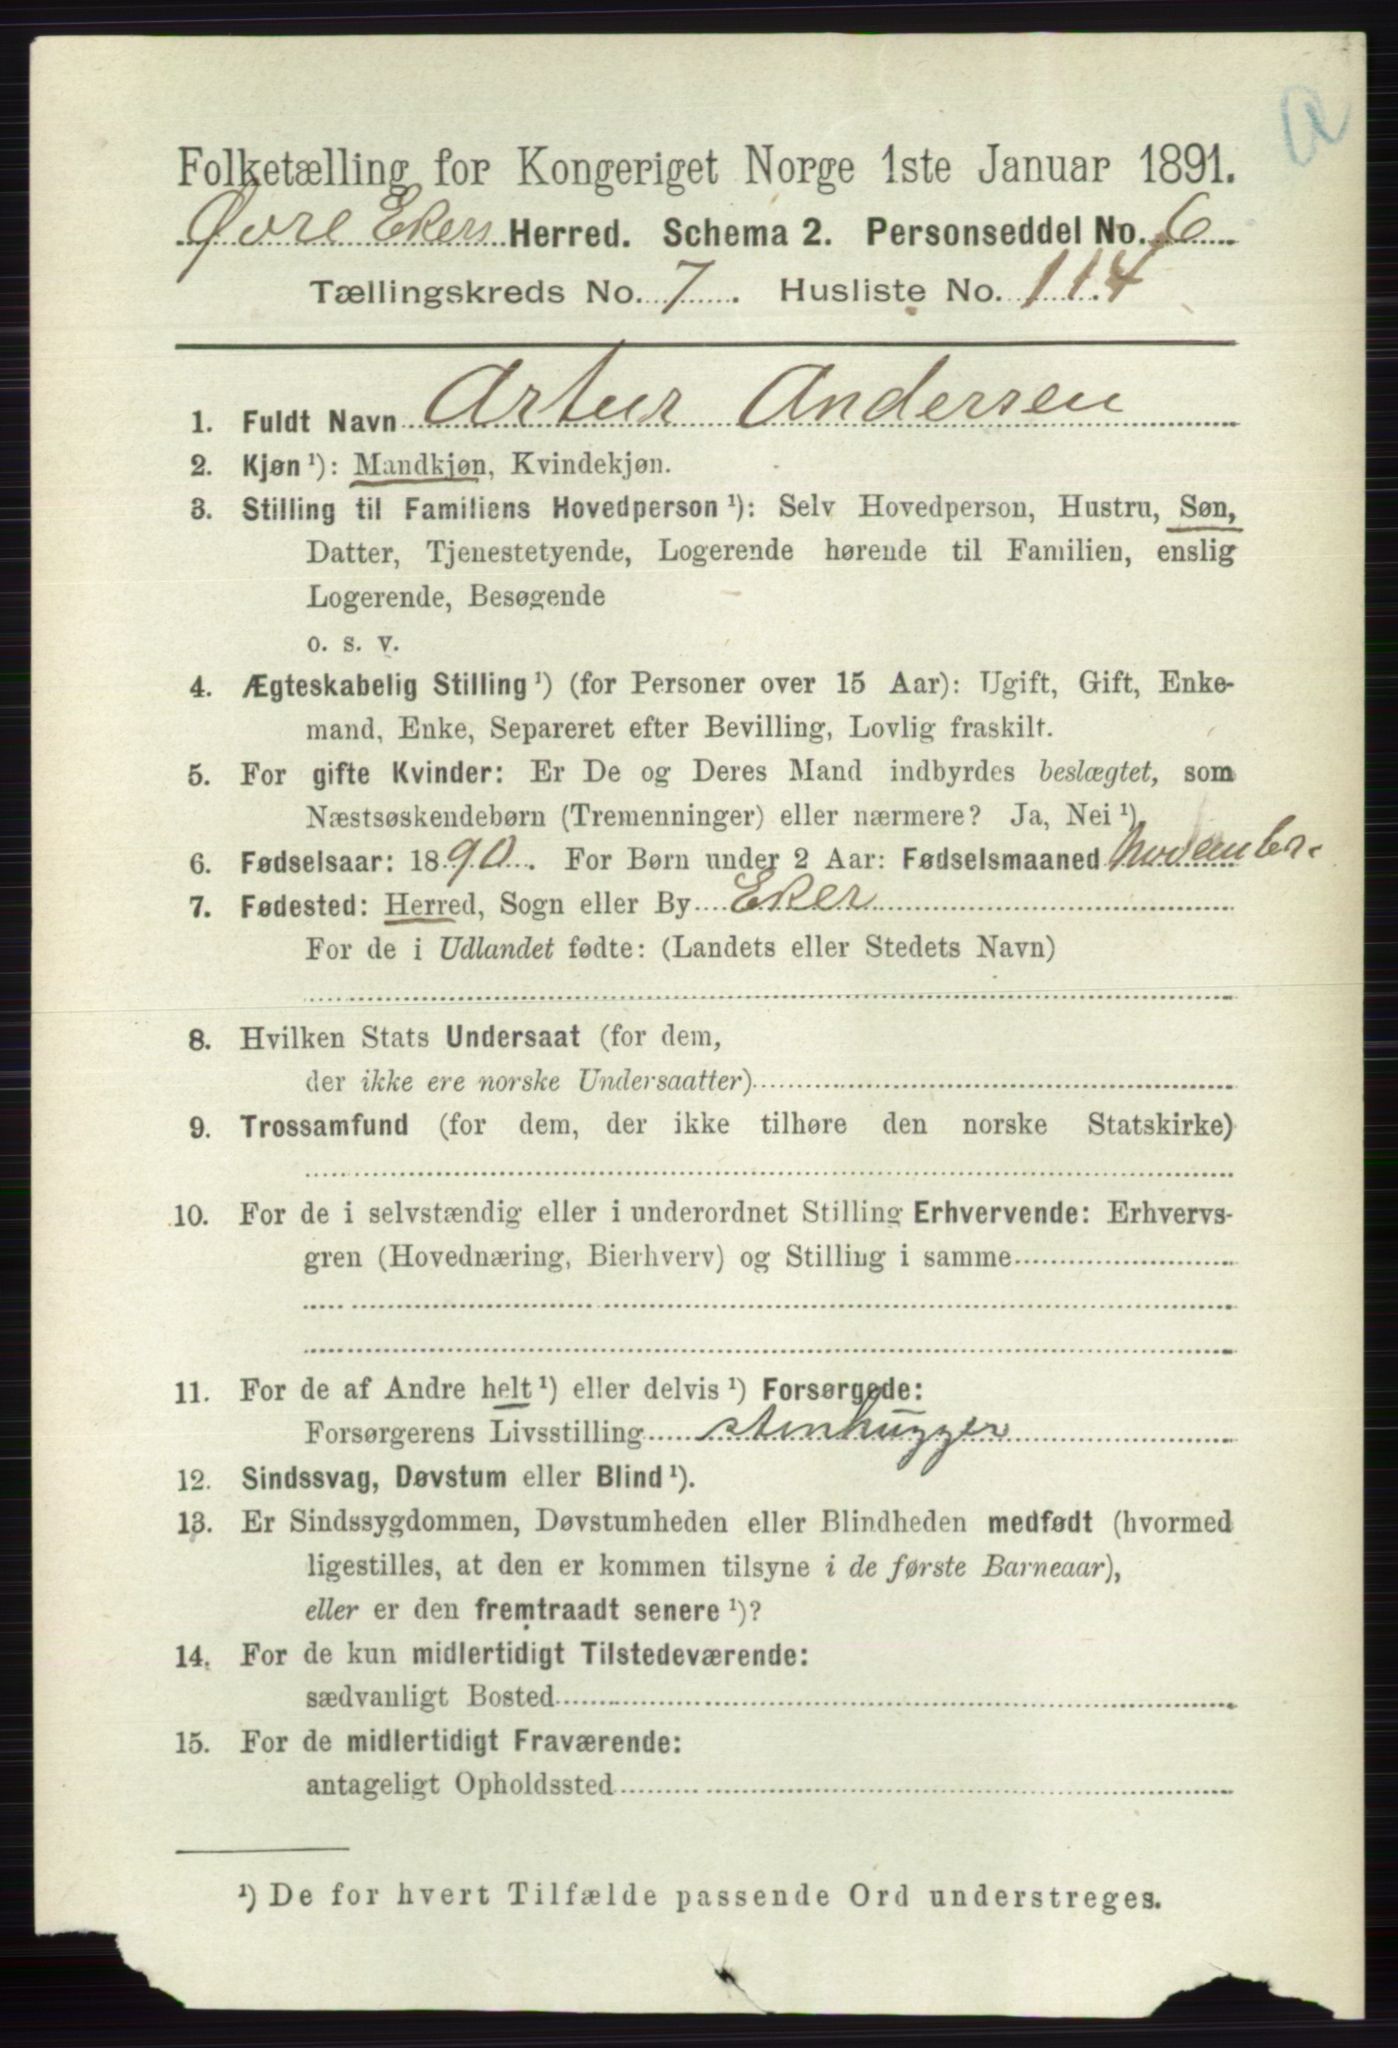 a
Folketælling for Kongeriget Norge 1ste Januar 1891.
Øvre Ekers Herred. Schema 2. Personseddel No. 6
Tællingskreds No. 7. Husliste No. 114
1. Fuldt Navn Artur Andersen
2. Kjøn ¹): Mandkjøn, Kvindekjøn.
3. Stilling til Familiens Hovedperson ¹): Selv Hovedperson, Hustru, Søn,
Datter, Tjenestetyende, Logerende hørende til Familien, enslig
Logerende, Besøgende
o. s. v.
4. Ægteskabelig Stilling ¹) (for Personer over 15 Aar): Ugift, Gift, Enke-
mand, Enke, Separeret efter Bevilling, Lovlig fraskilt.
5. For gifte Kvinder: Er De og Deres Mand indbyrdes beslægtet, som
Næstsøskendebørn (Tremenninger) eller nærmere? Ja, Nei ¹).
6. Fødselsaar: 1890. For Børn under 2 Aar: Fødselsmaaned November.
7. Fødested: Herred, Sogn eller By Eker
For de i Udlandet fødte: (Landets eller Stedets Navn)
8. Hvilken Stats Undersaat (for dem,
der ikke ere norske Undersaatter)
9. Trossamfund (for dem, der ikke tilhøre den norske Statskirke)
10. For de i selvstændig eller i underordnet Stilling Erhvervende: Erhvervs-
gren (Hovednæring, Bierhverv) og Stilling i samme
11. For de af Andre helt ¹) eller delvis ¹) Forsørgede:
Forsørgerens Livsstilling stenhugger
12. Sindssvag, Døvstum eller Blind ¹).
13. Er Sindssygdommen, Døvstumheden eller Blindheden medfødt (hvormed
ligestilles, at den er kommen tilsyne i de første Barneaar),
eller er den fremtraadt senere ¹)?
14. For de kun midlertidigt Tilstedeværende:
sædvanligt Bosted
15. For de midlertidigt Fraværende:
antageligt Opholdssted
¹) De for hvert Tilfælde passende Ord understreges.